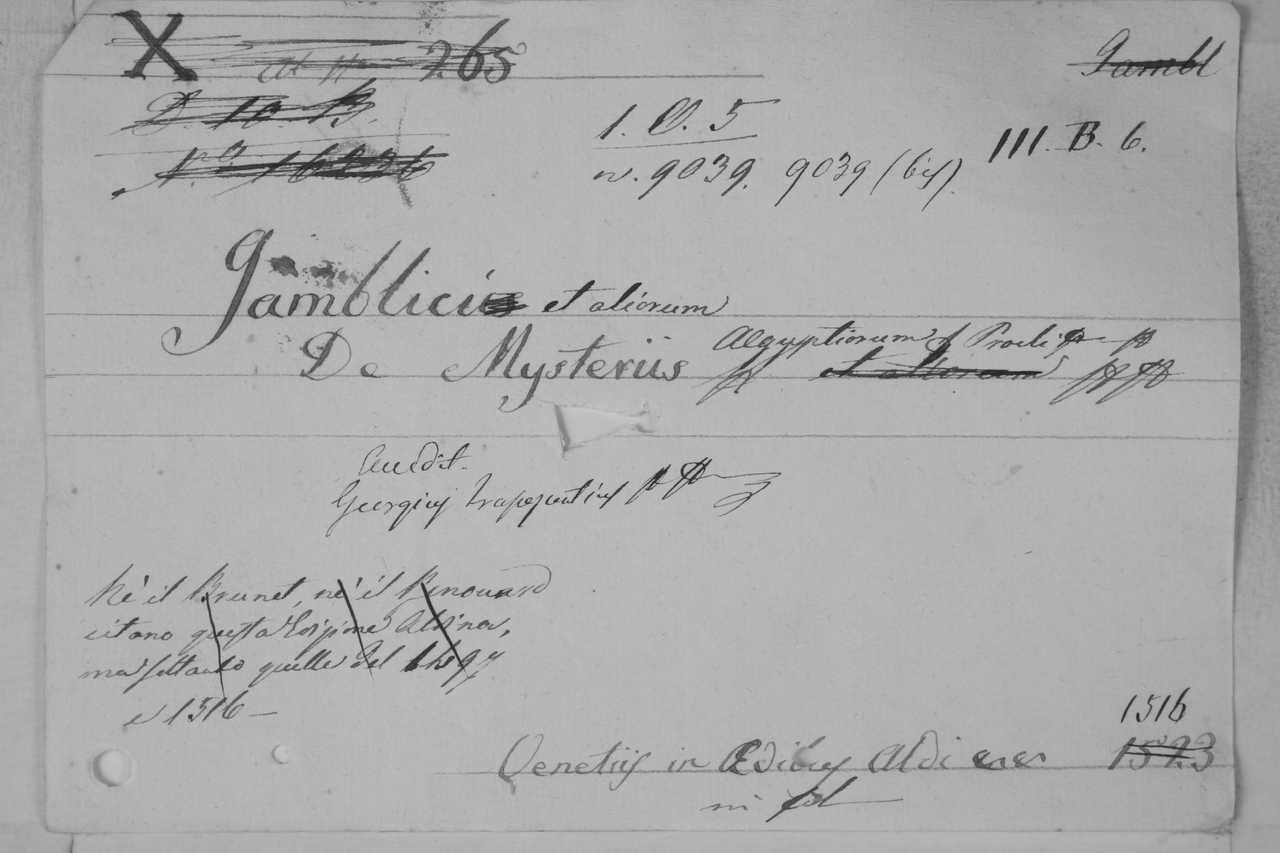 X 265
Jambl
D. 10. B.
1. O. 5
III. B. 6.
n. 9039. 9039 (bis)
Jamblici et aliorum
De Mysteriis Aegyptiorum Procli
et aliorum
Georgius Trapezuntius
Nè il Brunet, nè il Renouard
citano questa Edizione Aldina,
ma soltanto quelle del 1497
e 1516 —
1516
Venetiis in Ædibus Aldi 1523
in fol